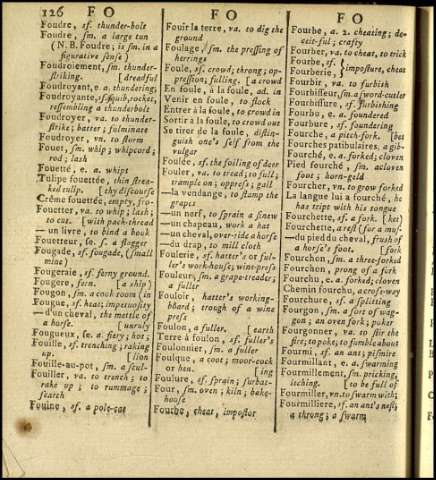 126 FO FO FO
Foudre, sf. thunder-bolt
Foudre, sm. a large tun
(N. B. Foudre; is sm. in a
figurative sense)
Foudroiement, sm. thunder-
striking. [dreadful
Foudroyant, e, a. thundering;
Foudroyante, sf. squib, rocket
resembling a thunderbolt
Foudroyer, va. to thunder-
strike; batter; fulminate
Foudroyer, vn. to storm
Fouet, sm. whip; whipcord;
rod; lash
Fouetté, e, a. whipt
Tulipe fouettée, thin strea-
ked tulip. [thy discourse
Crême fouettée, empty, fro-
Fouetter, va. to whip; lash;
to cut. [with pack-thread
— un livre, to bind a book
Fouetteur, se, s. a flogger
Fougade, sf. fougade, (small
mine)
Fougeraie, sf. ferny ground.
Fougere, fern. [a ship)
Fougon, sm. a cook room (in
Fougue, sf. heat; impetuosity
—d'un cheval, the mettle of
a horse. [unruly
Fougueux, se, a. fiery; hot;
Fouille, sf. trenching; raking
up. [lion
Fouille-au-pot, sm. a scul-
Fouiller, va. to trench; to
rake up; to rummage;
search
Fouine, sf. a pole-cat
Fouir la terre, va. to dig the
ground
Foulage, sm. the pressing of
herrings
Foule, sf. crowd; throng; op-
pression; fulling. [a crowd
En foule, à la foule, ad. in
Venir en foule, to flock
Entrer à la foule, to crowd in
Sortir à la foule, to crowd out
Se tirer de la foule, distin-
guish one's self from the
vulgar
Foulée, sf. the foiling of deer
Fouler, va. to tread; to full;
trample on; oppress; gall
—la vendange, to stamp the
grapes
—un nerf, to sprain a sinew
—un chapeau, work a hat
—un cheval, over-ride a horse
—du drap, to mill cloth
Foulerie, sf. hatter's or ful-
ler's work-house; wine-press
Fouleur, sm. a grape-treader;
a fuller
Fouloir, hatter's working-
board; trough of a wine
press
Foulon, a fuller. [earth
Terre à foulon, sf. fuller's
Foulonnier, sm. a fuller
Foulque, a coot; moor-cock
or hen. [ing
Foulure, sf. sprain; surbat-
Four, sm. oven; kiln; bake-
house
Fourbe, cheat, impostor
Fourbe, a. 2. cheating; de-
ceitful; crafty
Fourber, va. to cheat, to trick
Fourbe, sf.
Fourberie, } imposture, cheat
Fourbir, va. to furbish
Fourbisseur, sm. a sword-cutler
Fourbissure, sf. furbishing
Fourbu, e, a. foundered
Fourbure, sf. foundering
Fourche, a pitch-fork. [bet
Fourches patibulaires, a gib-
Fourché, e, a. forked; cloven
Pied fourché, sm. a cloven
foot; horn-geld
Fourcher, vn. to grow forked
La langue lui a fourché, he
has tript with his tongue
Fourchette, sf. a fork. [ket)
Fourchette, a rest (for a mus-
—du pied du cheval, frush of
a horse's foot. [fork
Fourchon, sm. a three-forked
Fourchon, prong of a fork
Fourchu, e, a. forked; cloven
Chemin fourchu, a cross-way
Fourchure, sf. a splitting
Fourgon, sm. a sort of wag-
gon; an oven fork; poker
Fourgonner, va. to stir the
fire; to poke; to fumble about
Fourmi, sf. an ant; pismire
Fourmillant, e, a. swarming
Fourmillement, sm. pricking,
itching. [to be full of
Fourmiller, vn. to swarm with;
Fourmilliere, sf. an ant's nest;
a throng; a swarm